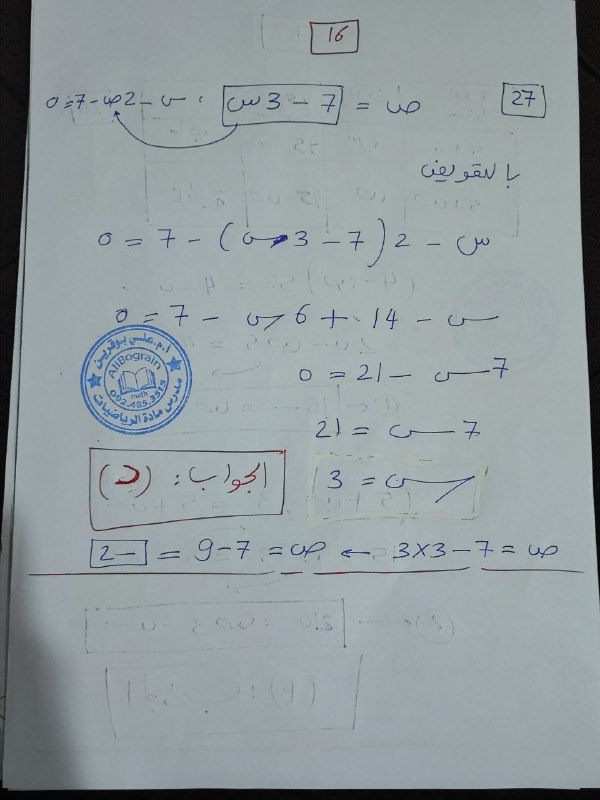 16
27 ص = 7 - 3س ، س - 2ص - 7 = 0
بالتعويض
س - 2 (7 - 3س) - 7 = 0
س - 14 + 6س - 7 = 0
7س - 21 = 0
7س = 21
س = 3
الجواب : (د)
ص = 7 - 3×3 ← ص = 7 - 9 = -2
أ.م.علي بوقرين
AliBograin
math
092.485.3515
مدرس مادة الرياضيات